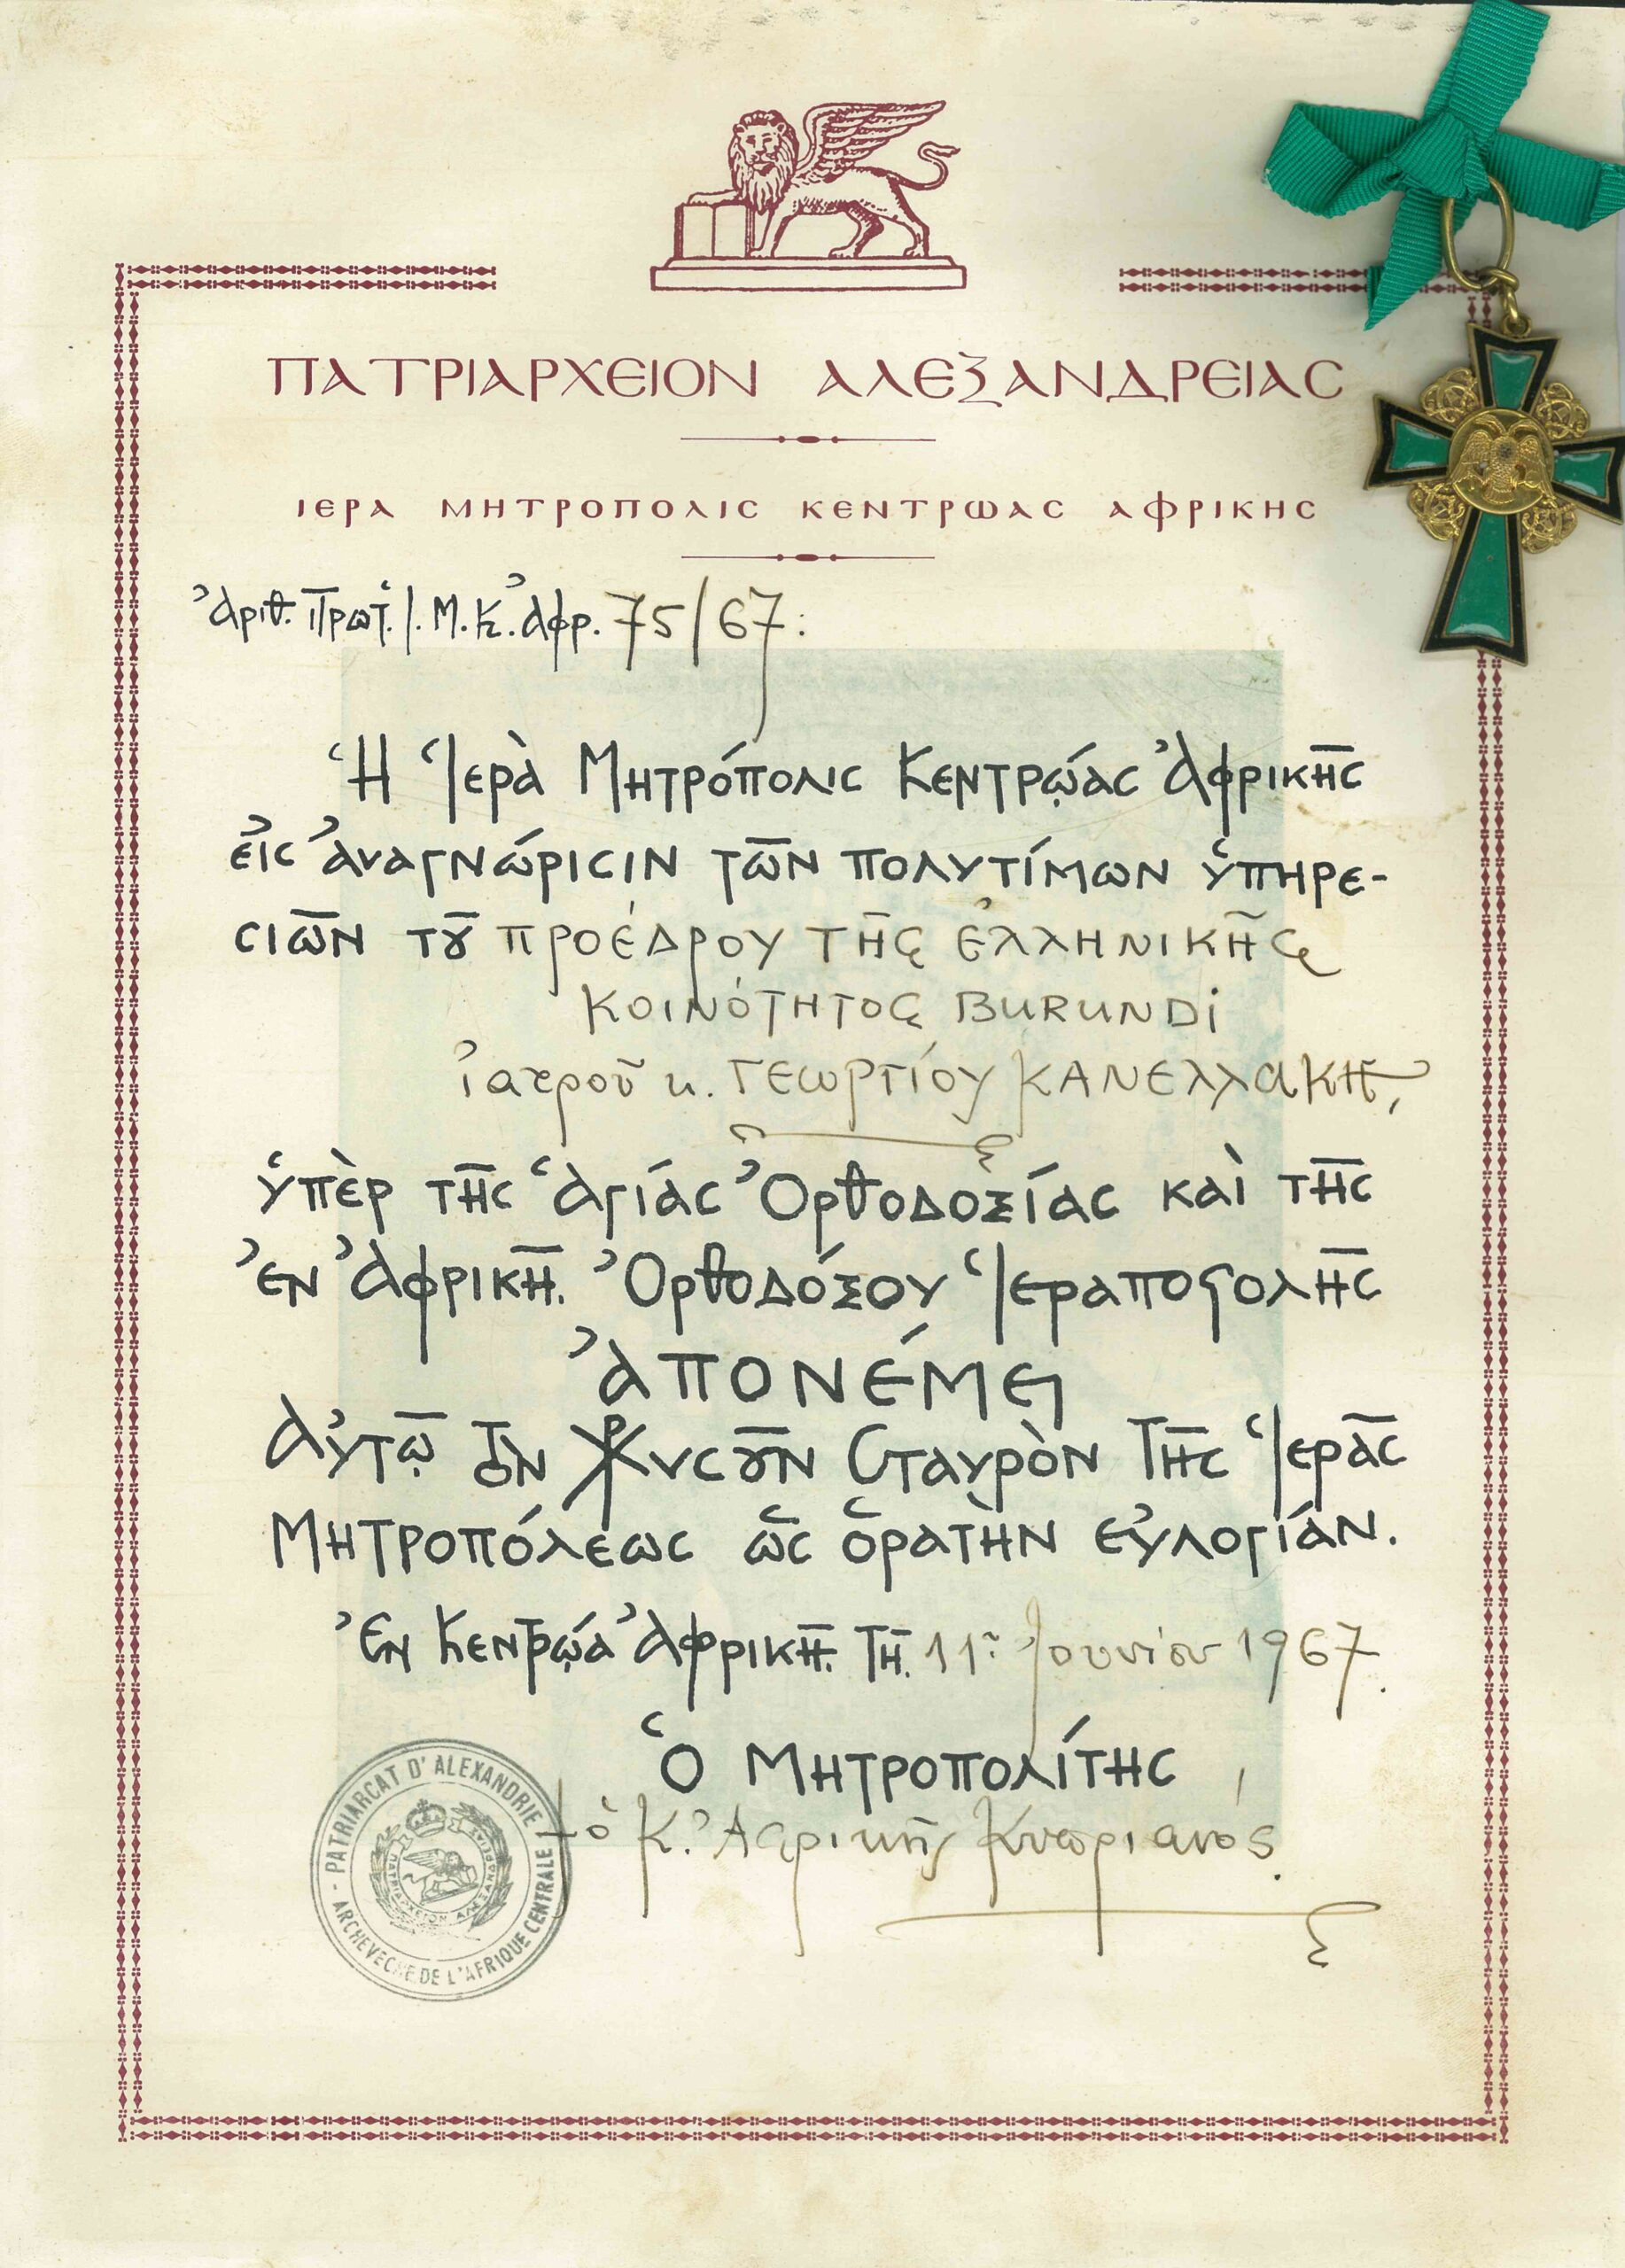 ΠΑΤΡΙΑΡΧΕΙΟΝ ΑΛΕΞΑΝΔΡΕΙΑC
ΙΕΡΑ ΜΗΤΡΟΠΟΛΙC ΚΕΝΤΡΩΑC ΑΦΡΙΚΗC
Ἀριθ. Πρωτ. Ι. Μ. Κ. Ἀφρ. 75/67.
Ἡ Ἱερὰ Μητρόπολις Κεντρῴας Ἀφρικῆς
εἰς ἀναγνώρισιν τῶν πολυτίμων ὑπηρε-
σιῶν τοῦ ΠΡΟΕΔΡΟΥ ΤΗΣ ΕΛΛΗΝΙΚΗΣ
ΚΟΙΝΟΤΗΤΟΣ BURUNDI
ἰατροῦ κ. ΓΕΩΡΓΙΟΥ ΚΑΝΕΛΛΑΚΗ,
ὑπὲρ τῆς Ἁγίας Ὀρθοδοξίας καὶ τῆς
ἐν Ἀφρικῇ Ὀρθοδόξου Ἱεραποστολῆς
Ἀπονέμει
Αὐτῷ τὸν Χρυσοῦν Σταυρὸν τῆς Ἱερᾶς
Μητροπόλεως ὡς ὁρατὴν εὐλογίαν.
Ἐν Κεντρῴᾳ Ἀφρικῇ τῇ 11ῃ Ἰουνίου 1967.
Ὁ Μητροπολίτης
† ὁ Κ. Ἀφρικῆς Κυπριανός.
- PATRIARCAT D'ALEXANDRIE -
ARCHEVECHE DE L'AFRIQUE CENTRALE
ΠΑΤΡΙΑΡΧΕΙΟΝ ΑΛΕΞΑΝΔΡΕΙΑΣ